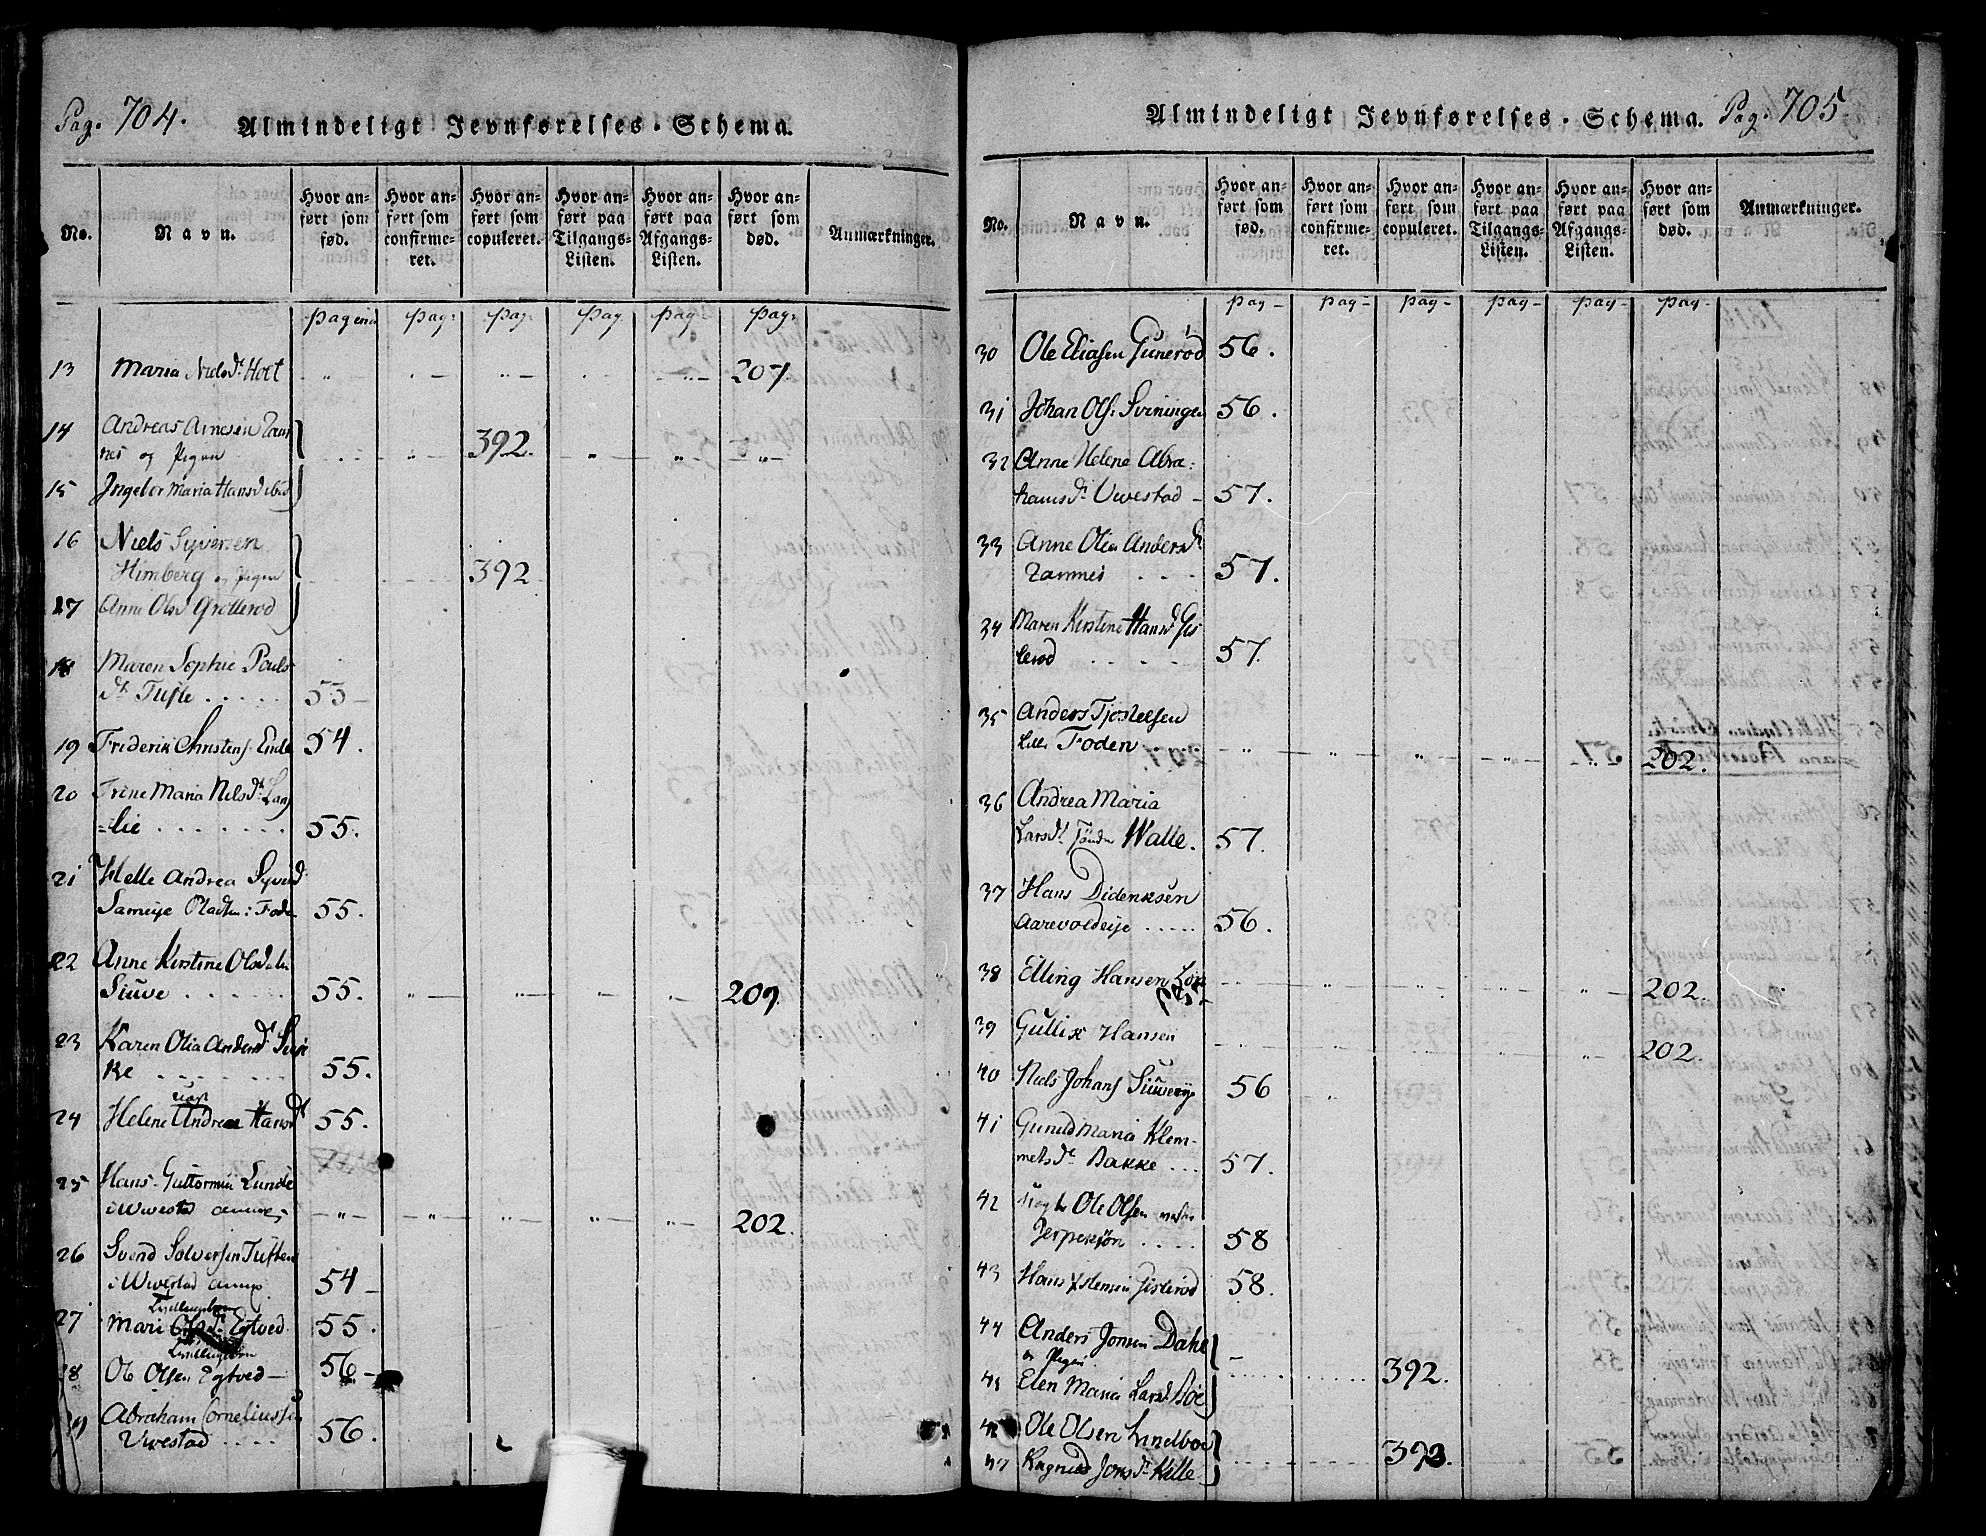 Pag. 704.
Almindeligt Jevnførelses-Schema.
No.
Navn.
Hvor anført som fød.
Hvor anført som confirmeret.
Hvor anført som copuleret.
Hvor anført paa Tilgangs-Listen.
Hvor anført paa Afgangs-Listen.
Hvor anført som død.
Anmærkninger.
pagina pag: pag: pag pag: pag:
13 Maria Nielsdr. Hoet 207
14 Andreas Arnesen
nes og Pigen 392.
15 Ingebor Maria Hansd ibid
16 Niels Syversen
Himberg og Pigen 392
17 Anne Olsd Grotterød
18 Maren Sophie Pouls
dr. Tufte . . . . . 53
19 Friderik Christens. Ende 54.
20 Trine Maria Nilsdr. Lang
=lie . . . . . . . 55.
21 Helle Andrea Syverd
55.
22 Anne Kirstine Olsdatr
Siuve . . . . . . 55. 209.
23 Karen Olia Andersdr.
55.
24 Helene Andrea Hansdr 55.
25 Hans Guttormsen Lunde
i Wivestad annex 202.
26 Svend Solversen Tuften
i Wivestad annex. 54
27 Mari Olsdr. Egtved 55.
28 Ole Olsen Egtved 56
29 Abraham Corneliussen
Vivestad . . . . 56.
Almindeligt Jevnførelses-Schema. Pag. 705
No.
Navn.
Hvor anført som fød.
Hvor anført som confirmeret.
Hvor anført som copuleret.
Hvor anført paa Tilgangs-Listen.
Hvor anført paa Afgangs-Listen.
Hvor anført som død.
Anmærkninger.
pag pag pag pag pag pag
30 Ole Eliasen Gunerød 56.
31 Johan Ols: Svinningen 56.
32 Anne Helene Abra:
hamsdr. Vivestad 57.
33 Anne Olia Andersdr
57.
34 Maren Kirstine Hansd. Gis
lerød . . . . . 57.
35 Anders Tjostelsen
Lille Foden 202.
36 Andrea Maria
Larsdr. Walle. 57.
37 Hans Didenksen
Aarevoldeije ..... 56.
38 Elling Hansen 202.
39 Gullik Hansen 202.
40 Niels Johans. 56
41 Gunild Maria Klem-
metsdr. Bakke ... 57.
42 Ole Olsen
Jerpekjøn .... 58
43 Hans Gislerød 58.
44 Anders Jonsen Dahl
og Pigen 392.
45 Elen Maria Larsd. Bøe
46 Ole Olsen Lindboe
393.
47 Ragnild Jonsdr. Kille